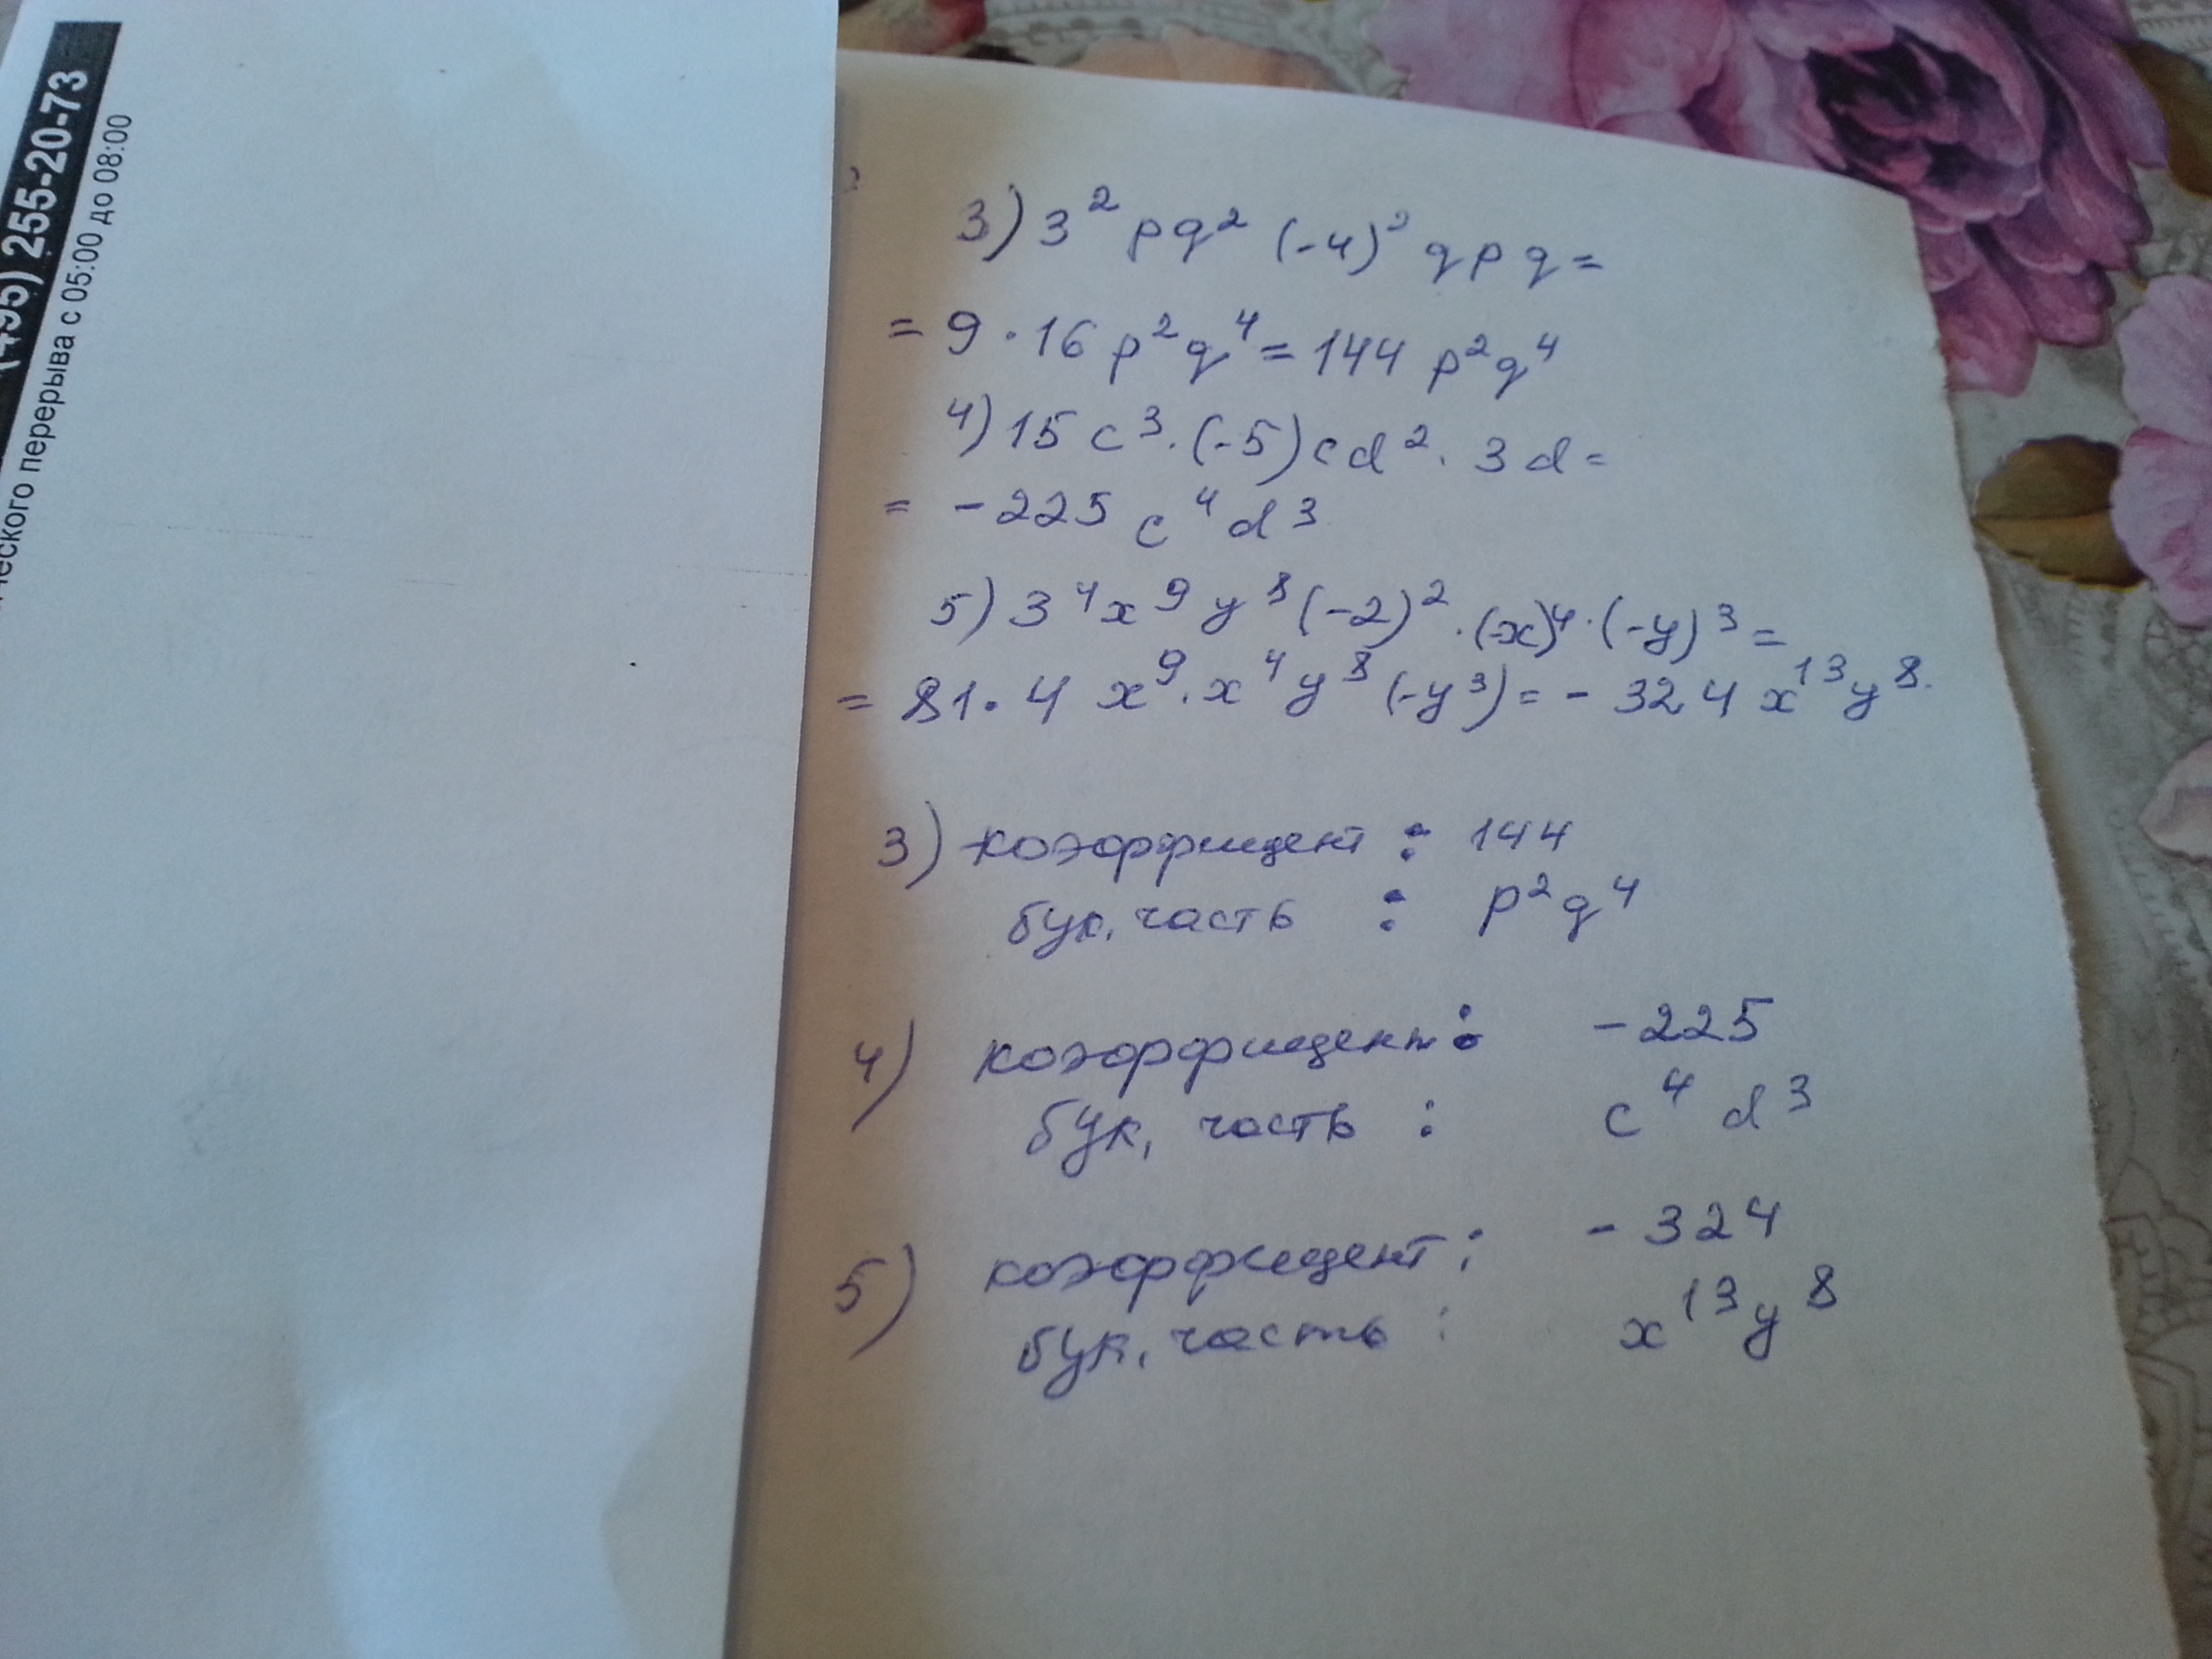 (495) 255-20-73
перерыва с 05:00 до 08:00
3) 3² pq² (-4)² qpq =
= 9 · 16 p²q⁴ = 144 p²q⁴
4) 15 c³ · (-5) cd² · 3d =
= -225 c⁴ d³
5) 3⁴ x⁹ y⁸ (-2)² · (-x)⁴ · (-y)³ =
= 81 · 4 x⁹ · x⁴ y⁸ (-y³) = - 324 x¹³y⁸.
3) коэффициент : 144
бук. часть : p²q⁴
4) коэффициент : -225
бук. часть : c⁴ d³
5) коэффициент : - 324
бук. часть : x¹³y⁸